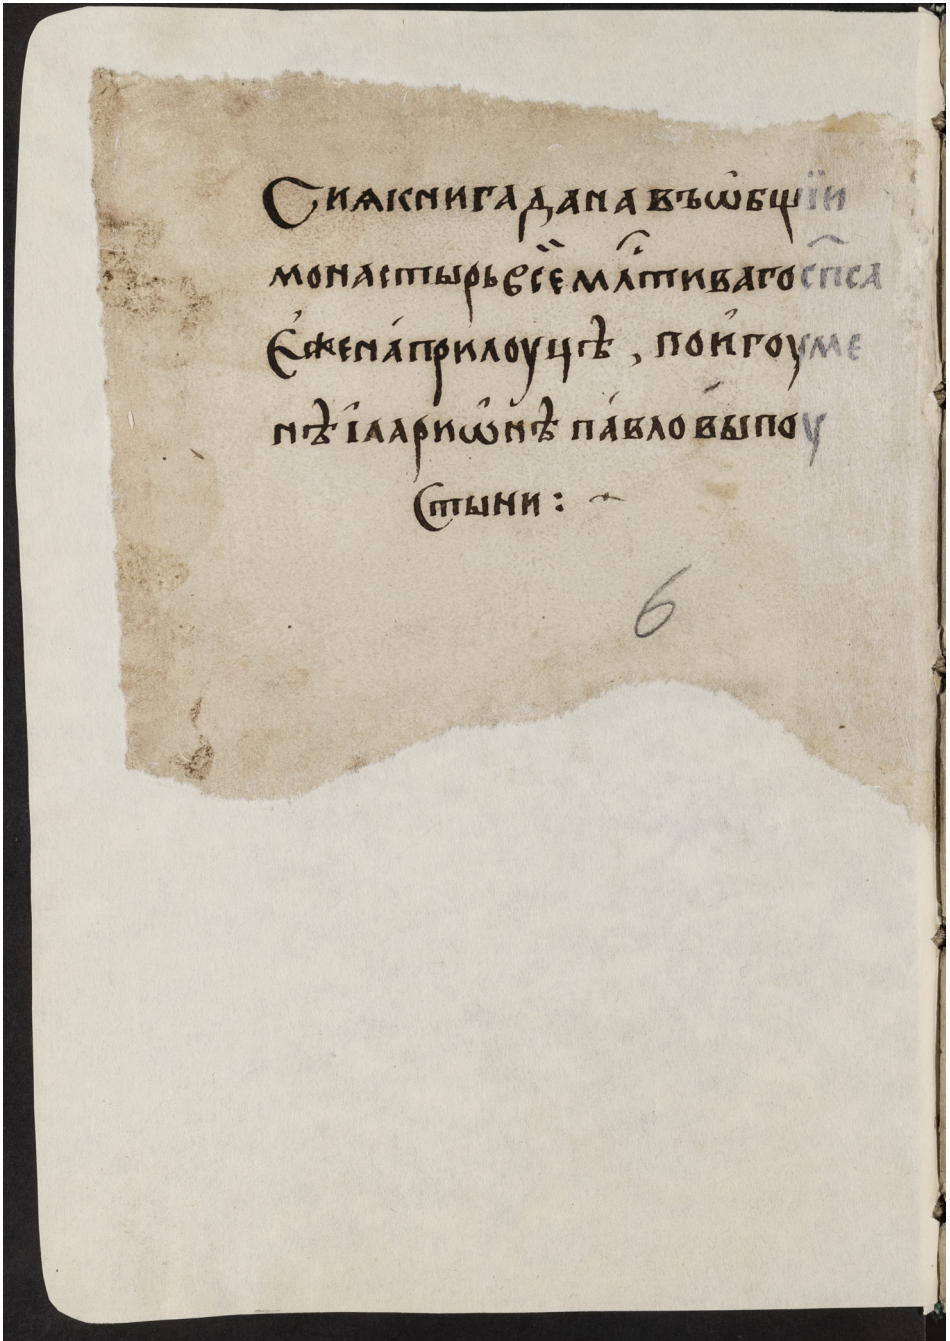 Сиѧ книга дана въ ѡ҆бщїи
монастырь всемл҃тиваго сп҃са
є҆же на́ прилоуцѣ, по и҆гоуме
нѣ і҆лариѡ҆нѣ па́вловы поу
стыни : ~
6